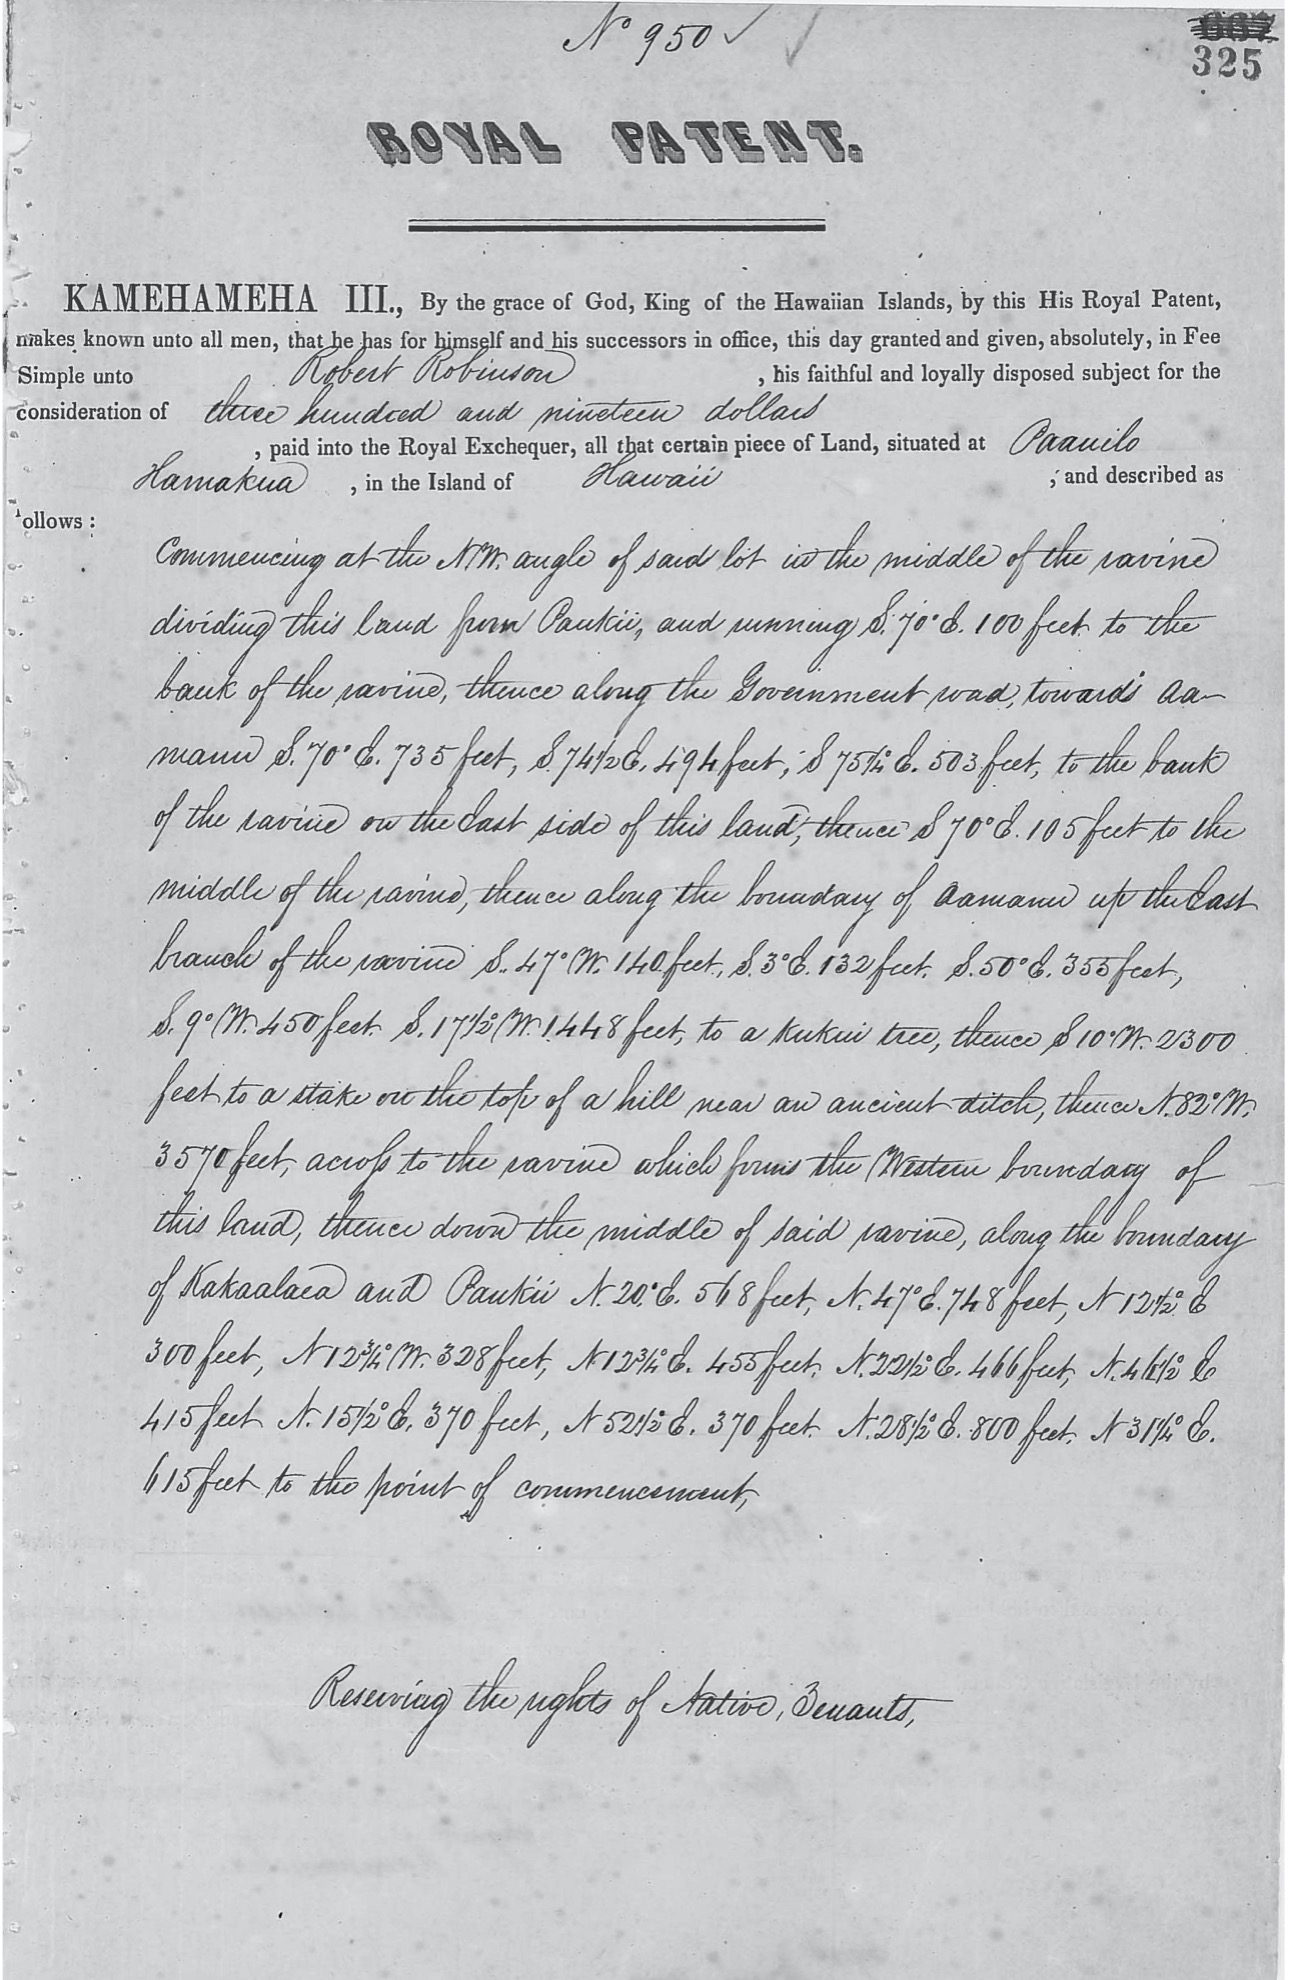 No 950
325
ROYAL PATENT.
KAMEHAMEHA III., By the grace of God, King of the Hawaiian Islands, by this His Royal Patent,
makes known unto all men, that he has for himself and his successors in office, this day granted and given, absolutely, in Fee
Simple unto Robert Robinson , his faithful and loyally disposed subject for the
consideration of three hundred and nineteen dollars
, paid into the Royal Exchequer, all that certain piece of Land, situated at Paauilo
Hamakua , in the Island of Hawaii ; and described as
ollows :
Commencing at the N.W. angle of said lot in the middle of the ravine
dividing this land from Paukii, and running S. 70° E. 100 feet to the
bank of the ravine, thence along the Government road, towards Aa-
manu S. 70° E. 735 feet, S. 74½ E. 494 feet, S 75¼° E. 503 feet, to the bank
of the ravine on the East side of this land, thence S 70° E. 105 feet to the
middle of the ravine, thence along the boundary of Aamanu up the East
branch of the ravine S. 47° W. 140 feet, S. 3° E. 132 feet. S. 50° E. 355 feet,
S. 9° W. 450 feet S. 17½° W. 1448 feet, to a kukui tree, thence S 10° W. 2300
feet to a stake on the top of a hill near an ancient ditch, thence N. 82° W.
3570 feet, across to the ravine which forms the Western boundary of
this land, thence down the middle of said ravine, along the boundary
of Kakaalaea and Paukii N. 20° E. 568 feet, N. 47° E. 748 feet, N 12½° E
300 feet, N 12¾° W. 328 feet, N 12¾° E. 455 feet. N. 22½° E. 466 feet, N. 46½° E
415 feet N. 15½° E. 370 feet, N 52½° E. 370 feet. N. 28½° E. 800 feet. N 31¼° E.
615 feet to the point of commencement,
Reserving the rights of Native, Tenants,